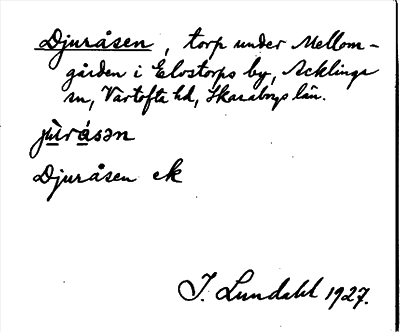 Djuråsen, torp under Mellom-
gården i Elostorps by, Acklinga
sn, Vartofta hd, Skaraborgs län.
jùråsən
Djuråsen ek
I. Lundahl 1927.